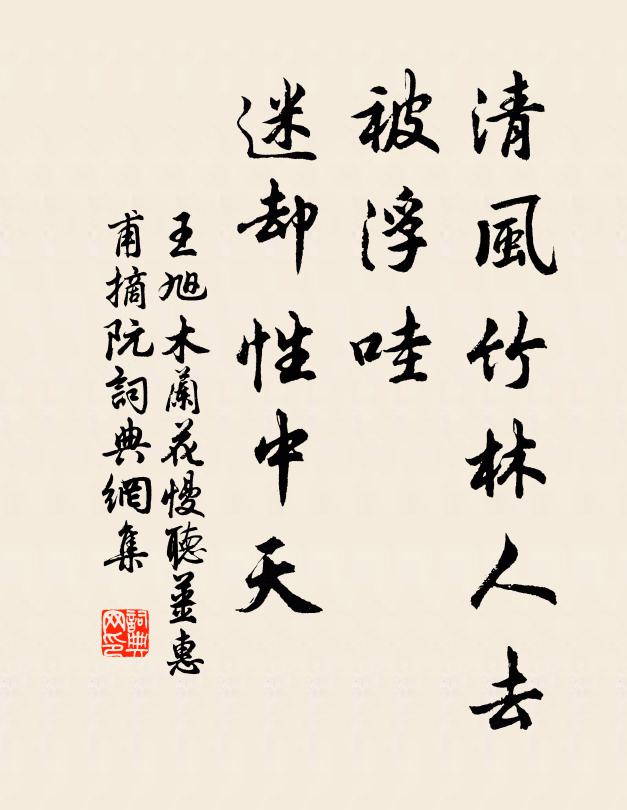 清風竹林人去
被浮哇
迷却性中天
王旭木蘭花慢聽姜惠
甫摘阮詞典網集
詞典網印